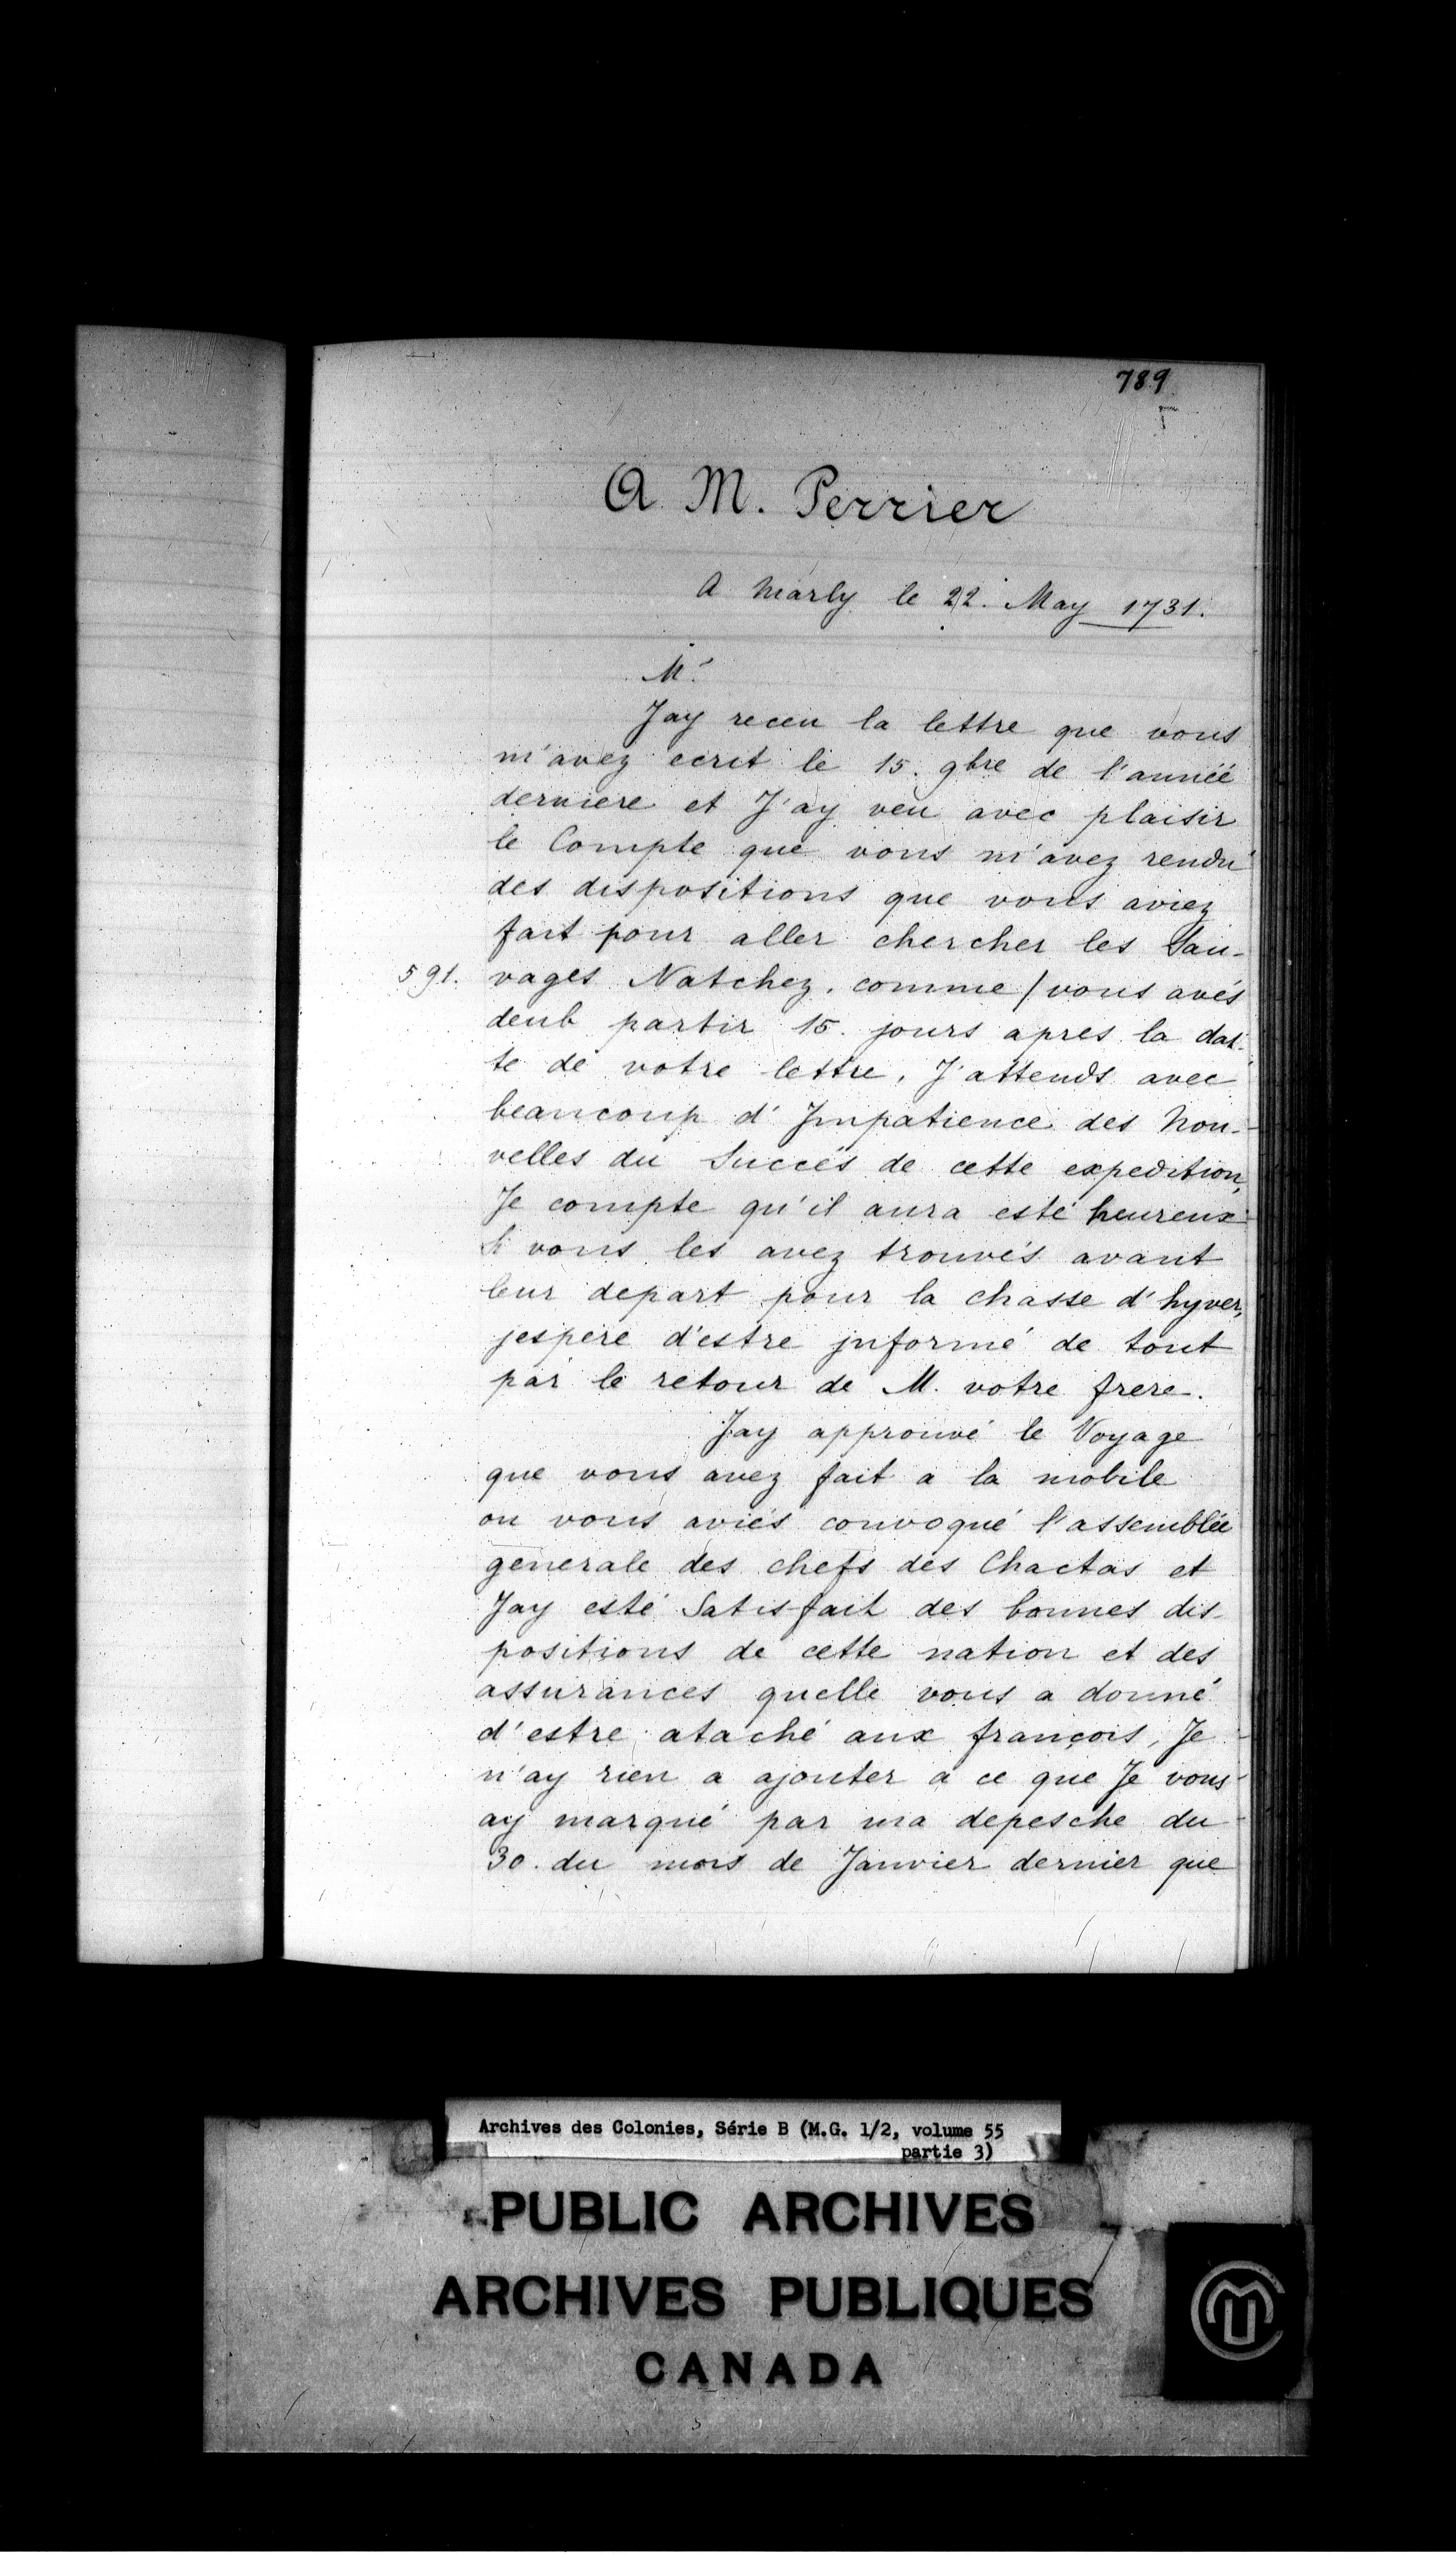 789
A M. Perrier
A Marly le 22. May 1731.
Mr.
Jay receu la lettre que vous
m'avez ecrit le 15. gbre de l'année
derniere et J'ay veu avec plaisir
le Compte que vous m'avez rendu
des dispositions que vous aviez
fait pour aller chercher les Sau-
591. vages Natchez. comme / vous avés
deub partir 15. jours apres la dat-
te de votre lettre, J'attends avec
beaucoup d'Impatience des Nou-
velles du Succés de cette expedition,
Je compte qu'il aura esté heureux
Si vous les avez trouvés avant
leur depart pour la chasse d'hyver,
jespere d'estre informé de tout
par le retour de M. votre frere.
Jay approuvé le Voyage
que vous avez fait a la mobile
ou vous aviés convoqué l'assemblée
generale des chefs des Chactas et
Jay esté Satisfait des bonnes dis-
positions de cette nation et des
assurances quelle vous a donné
d'estre ataché aux françois, Je
n'ay rien a ajouter a ce que Je vous
ay marqué par ma depesche du
30. du mois de Janvier dernier que
Archives des Colonies, Série B (M.G. 1/2, volume 55
partie 3)
PUBLIC ARCHIVES
ARCHIVES PUBLIQUES
CANADA